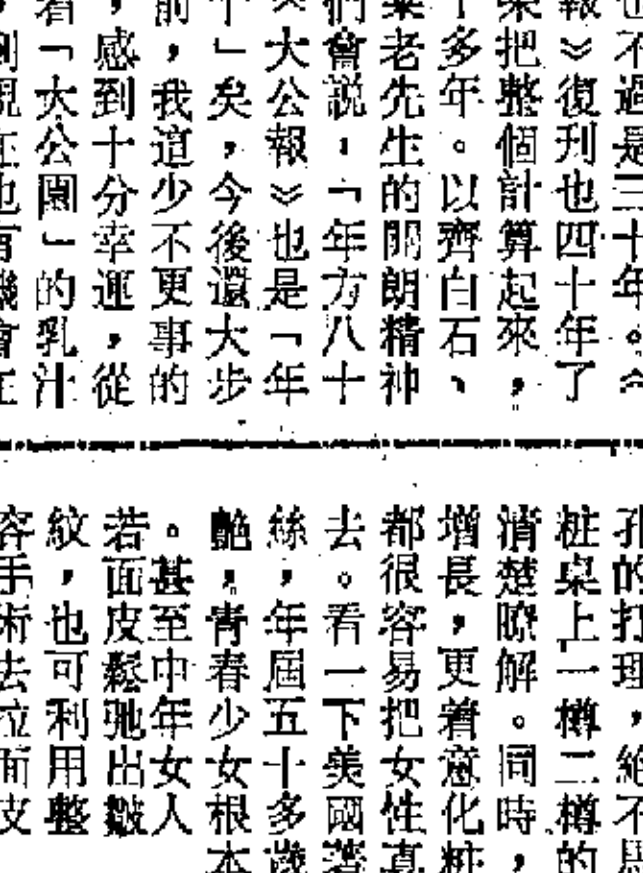 也不過是三十年。《
報》復刊也四十年了
把整個計算起來，
十多年。以齊白石、
老先生的開朗精神
們會説，「年方八十
《大公報》也是「年
」矣，今後還大步
前，我這少不更事的
，感到十分幸運，從
着「大公園」的乳汁
到現在也有機會在
孔的打理，絕不
桩桌上一樽二樽的
清楚瞭解。同時，
增長，更着意化粧
都很容易把女性真
去。看一下美國著
絲，年屆五十多歲
艷，青春少女根本
。甚至中年女人
若面皮鬆弛出皺
紋，也可利用整
容手術去拉面皮